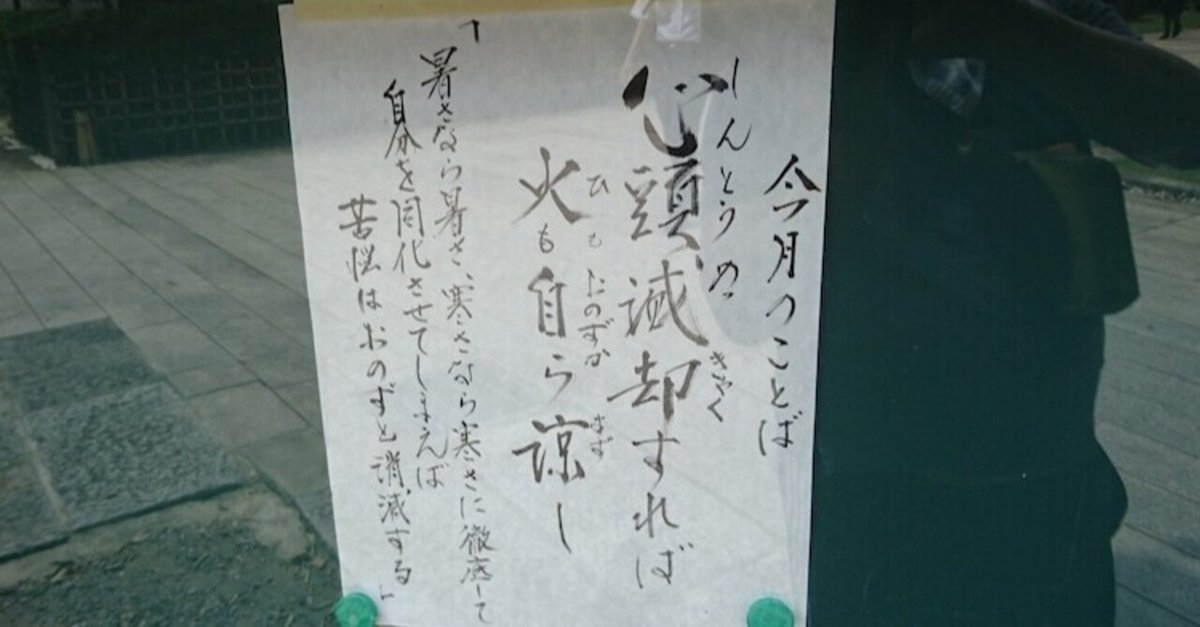 今月のことば
しんとうめっきゃく
心頭滅却すれば
ひもおのずかすず
火も自ら涼し
「暑さなら暑さ、寒さなら寒さに徹底して
自分を同化させてしまえば
苦悩はおのずと消滅する」